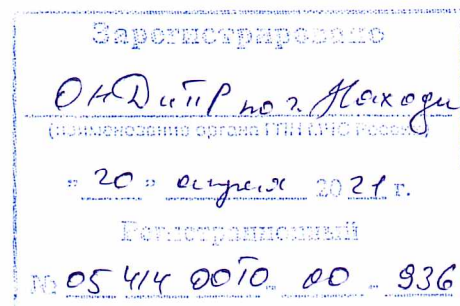 Зарегистрировано
ОНДиПР по г. Находк
(наименование органа ГПН МЧС России)
" 20 " апреля 2021 г.
Регистрационный
№ 05 414 0010 - 00 - 936